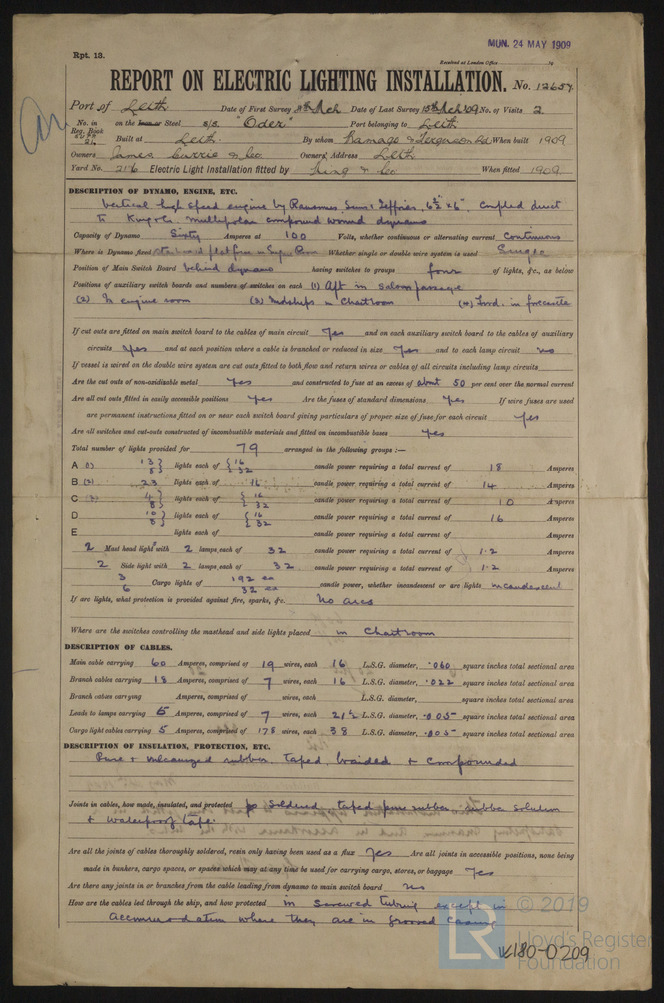 MON. 24 MAY 1909
Rpt. 13.
Received at London Office 19
REPORT ON ELECTRIC LIGHTING INSTALLATION. No. 12657.
Port of Leith Date of First Survey 11th Mch Date of Last Survey 15th Mch '09 No. of Visits 2
No. in on the Iron or Steel S/S. "Oder" Port belonging to Leith
Reg. Book
Built at Leith. By whom Ramage & Ferguson Ld When built 1909
Owners James Currie & Co. Owners' Address Leith
Yard No. 216 Electric Light Installation fitted by King & Co When fitted 1909.
DESCRIPTION OF DYNAMO, ENGINE, ETC.
Vertical high speed engine by Ransomes Sims & Jefferies, 6½ x 6". Coupled direct
to King & Co. multipolar compound wound dynamo
Capacity of Dynamo Sixty Amperes at 100 Volts, whether continuous or alternating current Continuous
Where is Dynamo fixed starboard platform in Engine Room Whether single or double wire system is used Single
Position of Main Switch Board behind dynamo having switches to groups four of lights, &c., as below
Positions of auxiliary switch boards and numbers of switches on each (1) Aft in saloon passage
(2) In engine room (3) Midships in Chartroom (4) Ford. in forecastle
If cut outs are fitted on main switch board to the cables of main circuit Yes and on each auxiliary switch board to the cables of auxiliary
circuits Yes and at each position where a cable is branched or reduced in size Yes and to each lamp circuit no
If vessel is wired on the double wire system are cut outs fitted to both flow and return wires or cables of all circuits including lamp circuits
Are the cut outs of non-oxidizable metal Yes and constructed to fuse at an excess of about 50 per cent over the normal current
Are all cut outs fitted in easily accessible positions Yes Are the fuses of standard dimensions Yes If wire fuses are used
are permanent instructions fitted on or near each switch board giving particulars of proper size of fuse for each circuit Yes
Are all switches and cut-outs constructed of incombustible materials and fitted on incombustible bases Yes
Total number of lights provided for 79 arranged in the following groups :—
A (1) 13 } lights each of { 16 candle power requiring a total current of 18 Amperes
8 } { 32
B (2) 23 lights each of 16 candle power requiring a total current of 14 Amperes
C (3) 4 } lights each of { 16 candle power requiring a total current of 10 Amperes
8 } { 32
D 10 } lights each of { 16 candle power requiring a total current of 16 Amperes
8 } { 32
E lights each of candle power requiring a total current of Amperes
2 Mast head light s with 2 lamps each of 32 candle power requiring a total current of 1.2 Amperes
2 Side light with 2 lamps each of 32 candle power requiring a total current of 1.2 Amperes
3 Cargo lights of 192 ea candle power, whether incandescent or arc lights incandescent
6 32 ea
If arc lights, what protection is provided against fire, sparks, &c. No arcs
Where are the switches controlling the masthead and side lights placed in Chartroom
DESCRIPTION OF CABLES.
Main cable carrying 60 Amperes, comprised of 19 wires, each 16 L.S.G. diameter, .060 square inches total sectional area
Branch cables carrying 18 Amperes, comprised of 7 wires, each 16 L.S.G. diameter, .022 square inches total sectional area
Branch cables carrying Amperes, comprised of wires, each L.S.G. diameter, square inches total sectional area
Leads to lamps carrying 5 Amperes, comprised of 7 wires, each 21½ L.S.G. diameter, .005 square inches total sectional area
Cargo light cables carrying 5 Amperes, comprised of 178 wires, each 38 L.S.G. diameter, .005 square inches total sectional area
DESCRIPTION OF INSULATION, PROTECTION, ETC.
Pure & vulcanized rubber, taped, braided & compounded
Joints in cables, how made, insulated, and protected Soldered taped pure rubber, rubber solution
& waterproof tape.
Are all the joints of cables thoroughly soldered, resin only having been used as a flux Yes Are all joints in accessible positions, none being
made in bunkers, cargo spaces, or spaces which may at any time be used for carrying cargo, stores, or baggage Yes
Are there any joints in or branches from the cable leading from dynamo to main switch board no
How are the cables led through the ship, and how protected in screwed tubing except in
accommodation where they are in grooved casing
© 2019
LR Lloyd's Register
Foundation
W180-0209